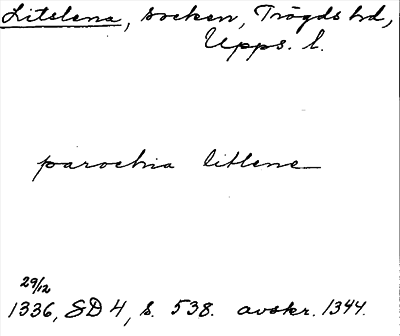 Litslena, socken, Trögds hd,
Upps. l.
parochia litlene
29/12
1336, SD 4, s. 538. avskr. 1344.